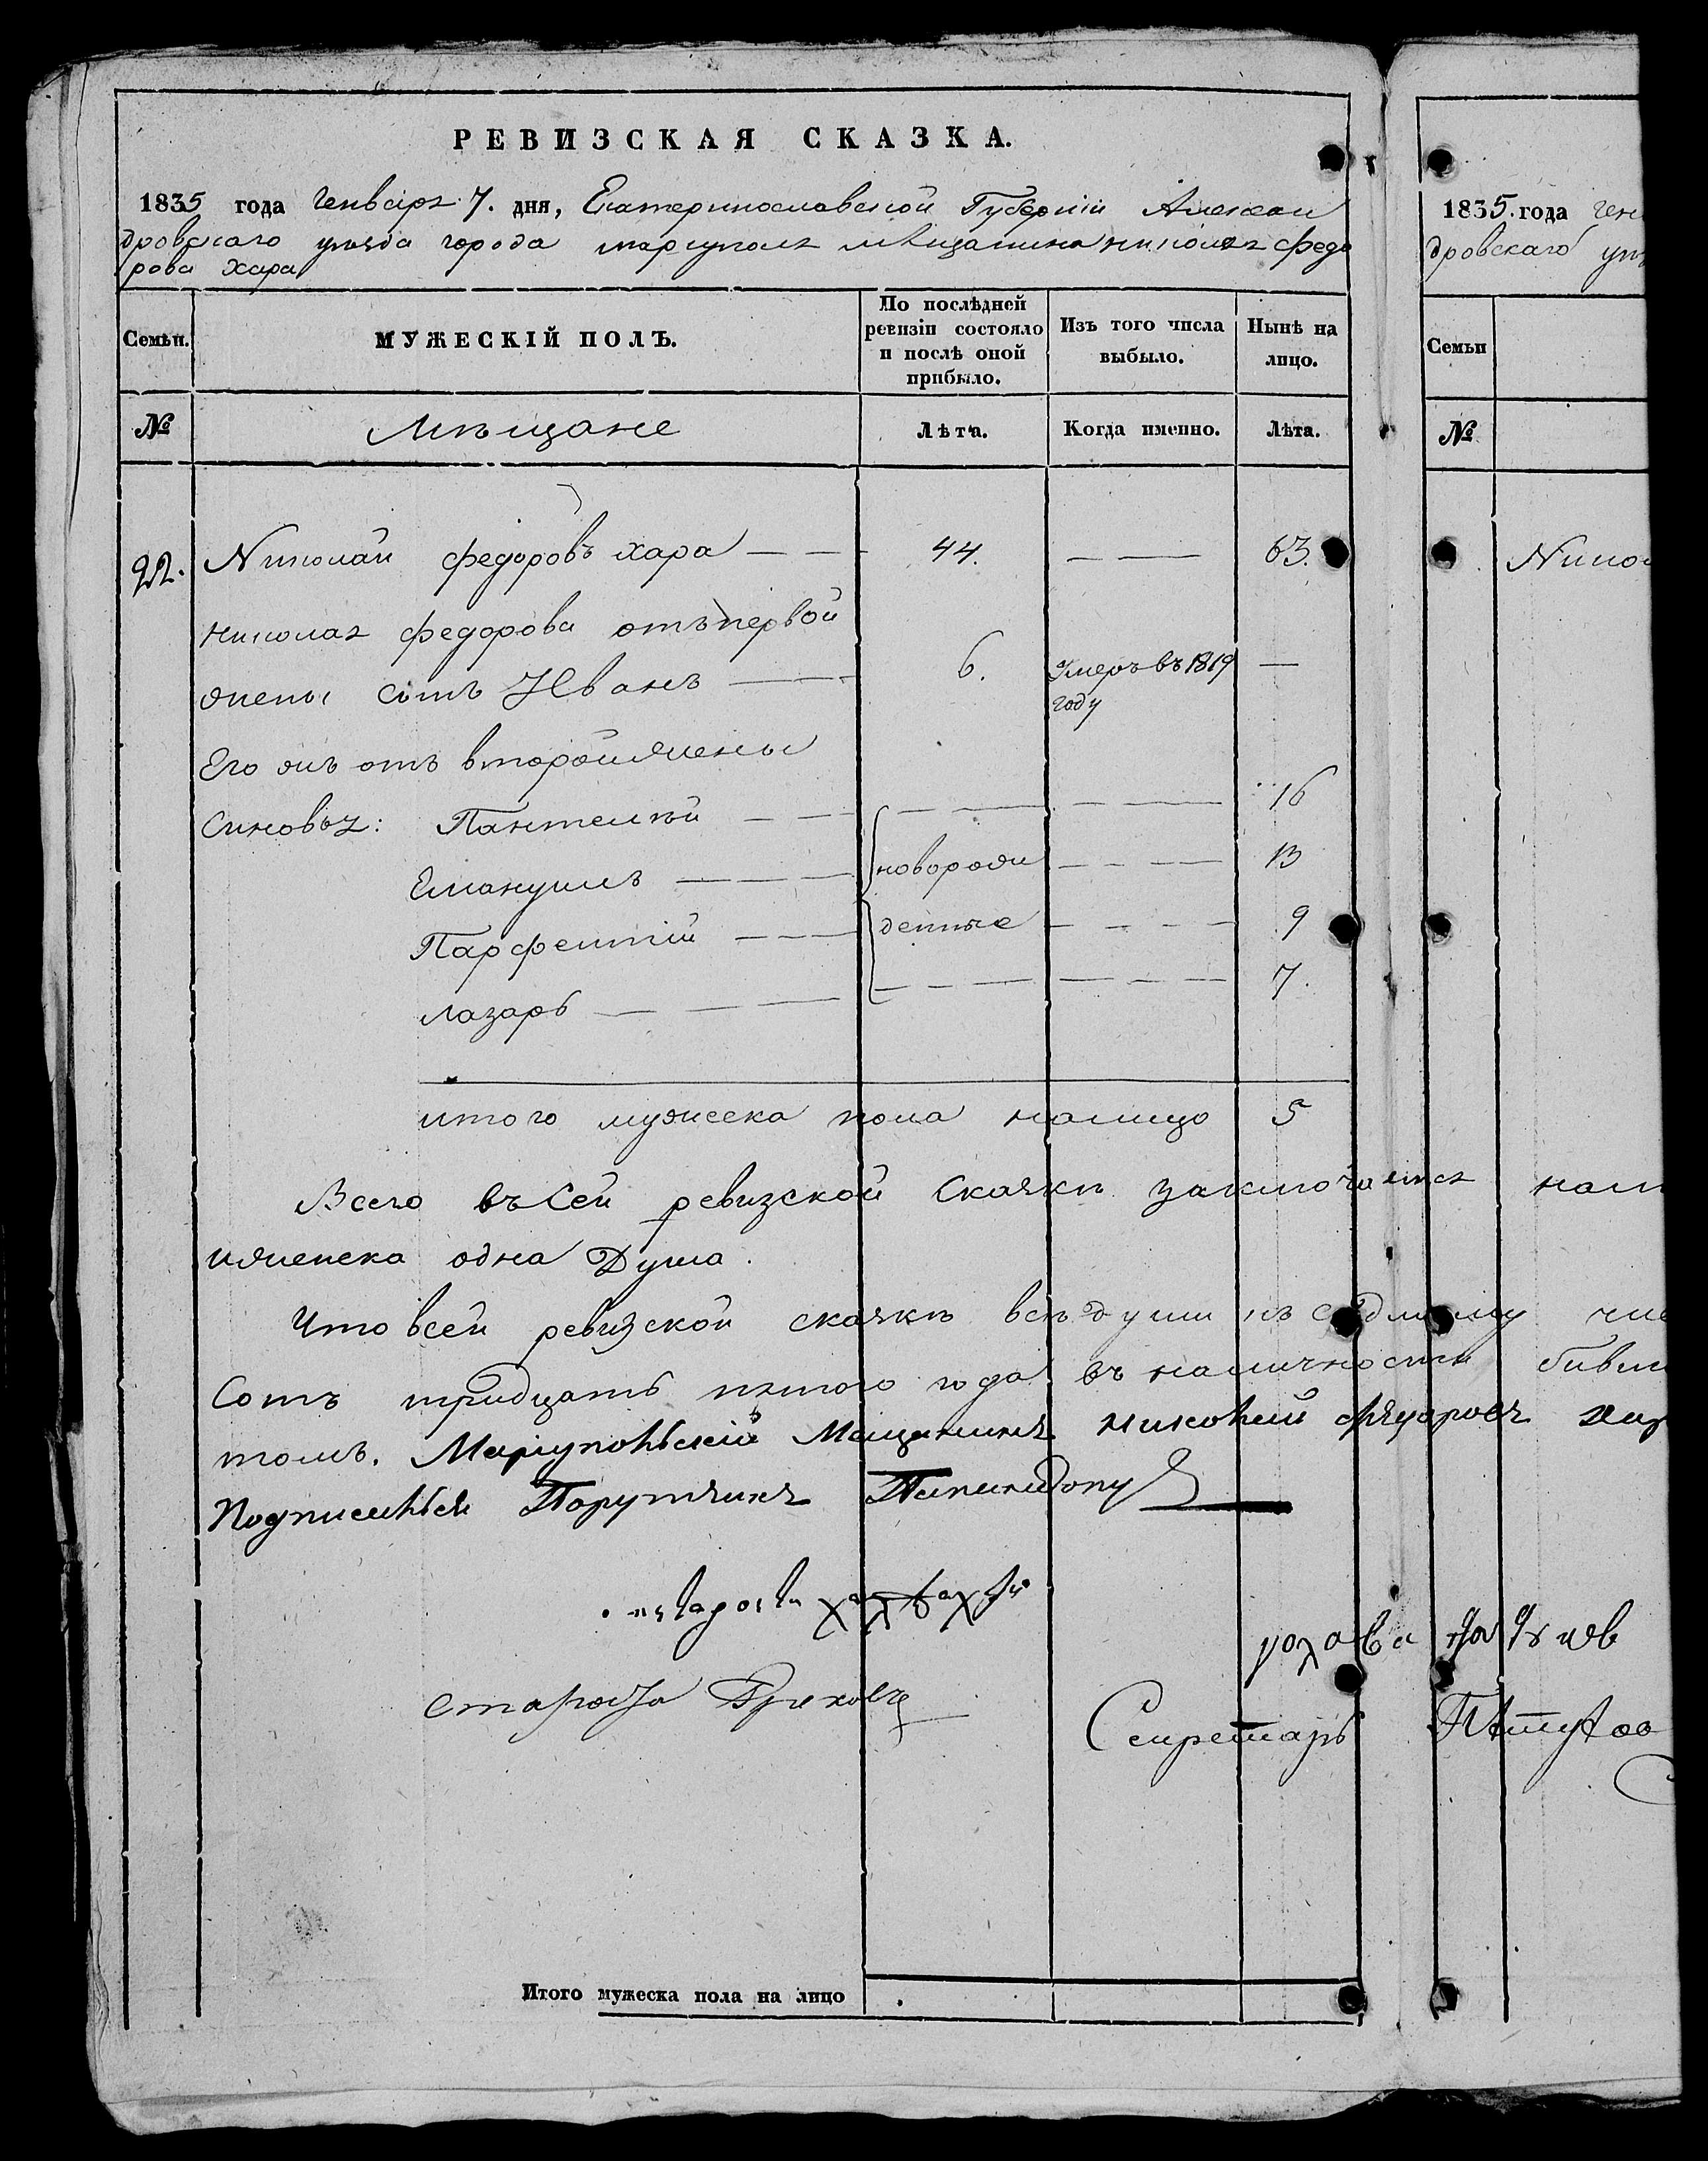 РЕВИЗСКАЯ СКАЗКА.
1835 года Генваря 7. дня, Екатеринославской Губерніи Алексан
дровскаго уезда города мариуполя мещанина николая федо
рова Хара
Семьи.
МУЖЕСКІЙ ПОЛЪ.
По послѣдней ревизіи состояло и послѣ оной прибыло.
Изъ того числа выбыло.
Нынѣ на лицо.
№
Мѣщане
Лѣта.
Когда именно.
Лѣта.
22. Николай федоровъ хара 44. 63.
николая федорова отъ первой
жены синъ Иванъ 6. Умеръ въ 1819 году
Его жъ отъ второй жены
Синовья: Пантелѣй 16
Емануилъ новорож 13
Парфентій денные 9
Лазарь 7.
итого мужеска пола налицо 5
Всего въ Сей ревизской Скаскѣ заключается нали
и женска одна Душа.
Что всей ревизской скаскѣ всѣ души къ седмому чис
Сотъ тридцать пятого года въ наличности бивш
томъ. Маріупольскій Мещанинъ николай Федоровъ Хар
староста Грековъ
голова
Секретарь
Итого мужеска пола на лицо
1835. года Ген
дровскаго уѣ
Семьи
№
Никол